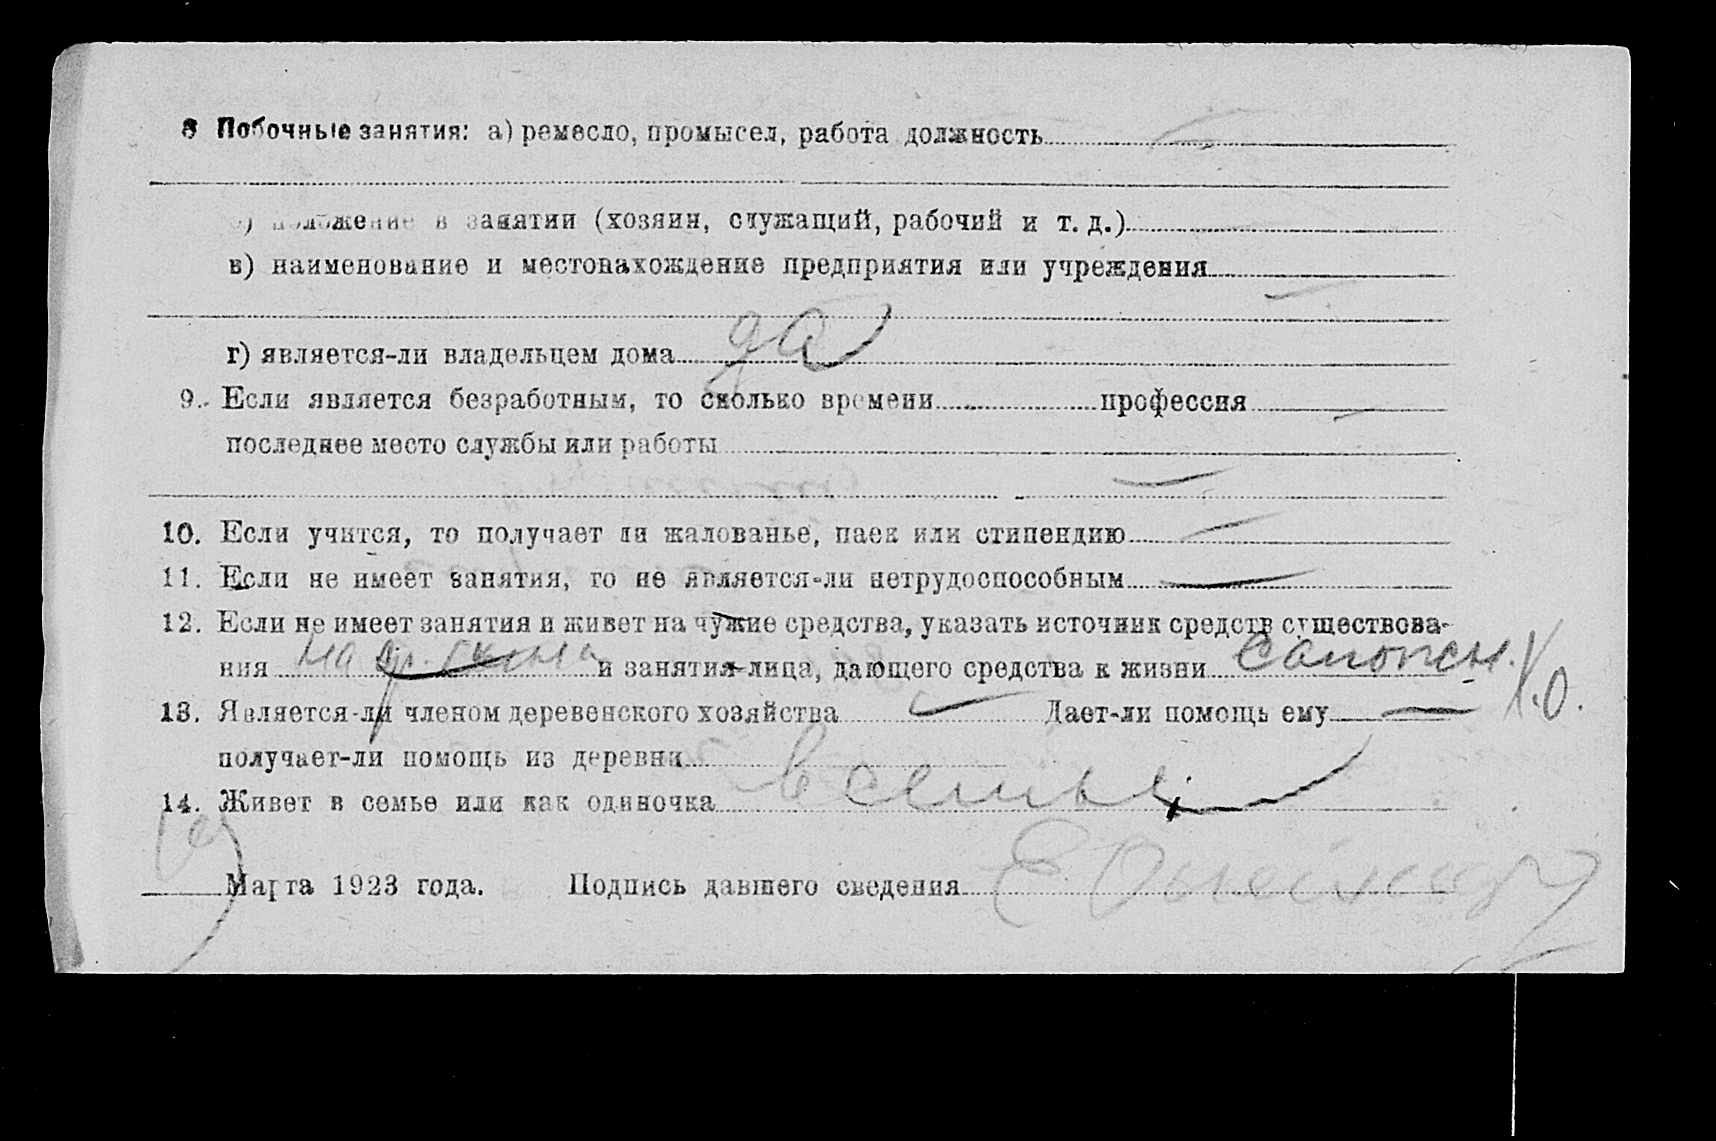 8 Побочные занятия: а) ремесло, промысел, работа должность —
б) положение в занятии (хозяин, служащий, рабочий и т. д.)
в) наименование и местонахождение предприятия или учреждения —
г) является-ли владельцем дома да
9. Если является безработным, то сколько времени профессия —
последнее место службы или работы —
10. Если учится, то получает ли жалованье, паек или стипендию —
11. Если не имеет занятия, то не является-ли нетрудоспособным —
12. Если не имеет занятия и живет на чужие средства, указать источник средств существова-
ния на ср. сына и занятия лица, дающего средства к жизни сапожн.
13. Является-ли членом деревенского хозяйства — Дает-ли помощь ему —
получает-ли помощь из деревни
14. Живет в семье или как одиночка в семье
Марта 1923 года. Подпись давшего сведения